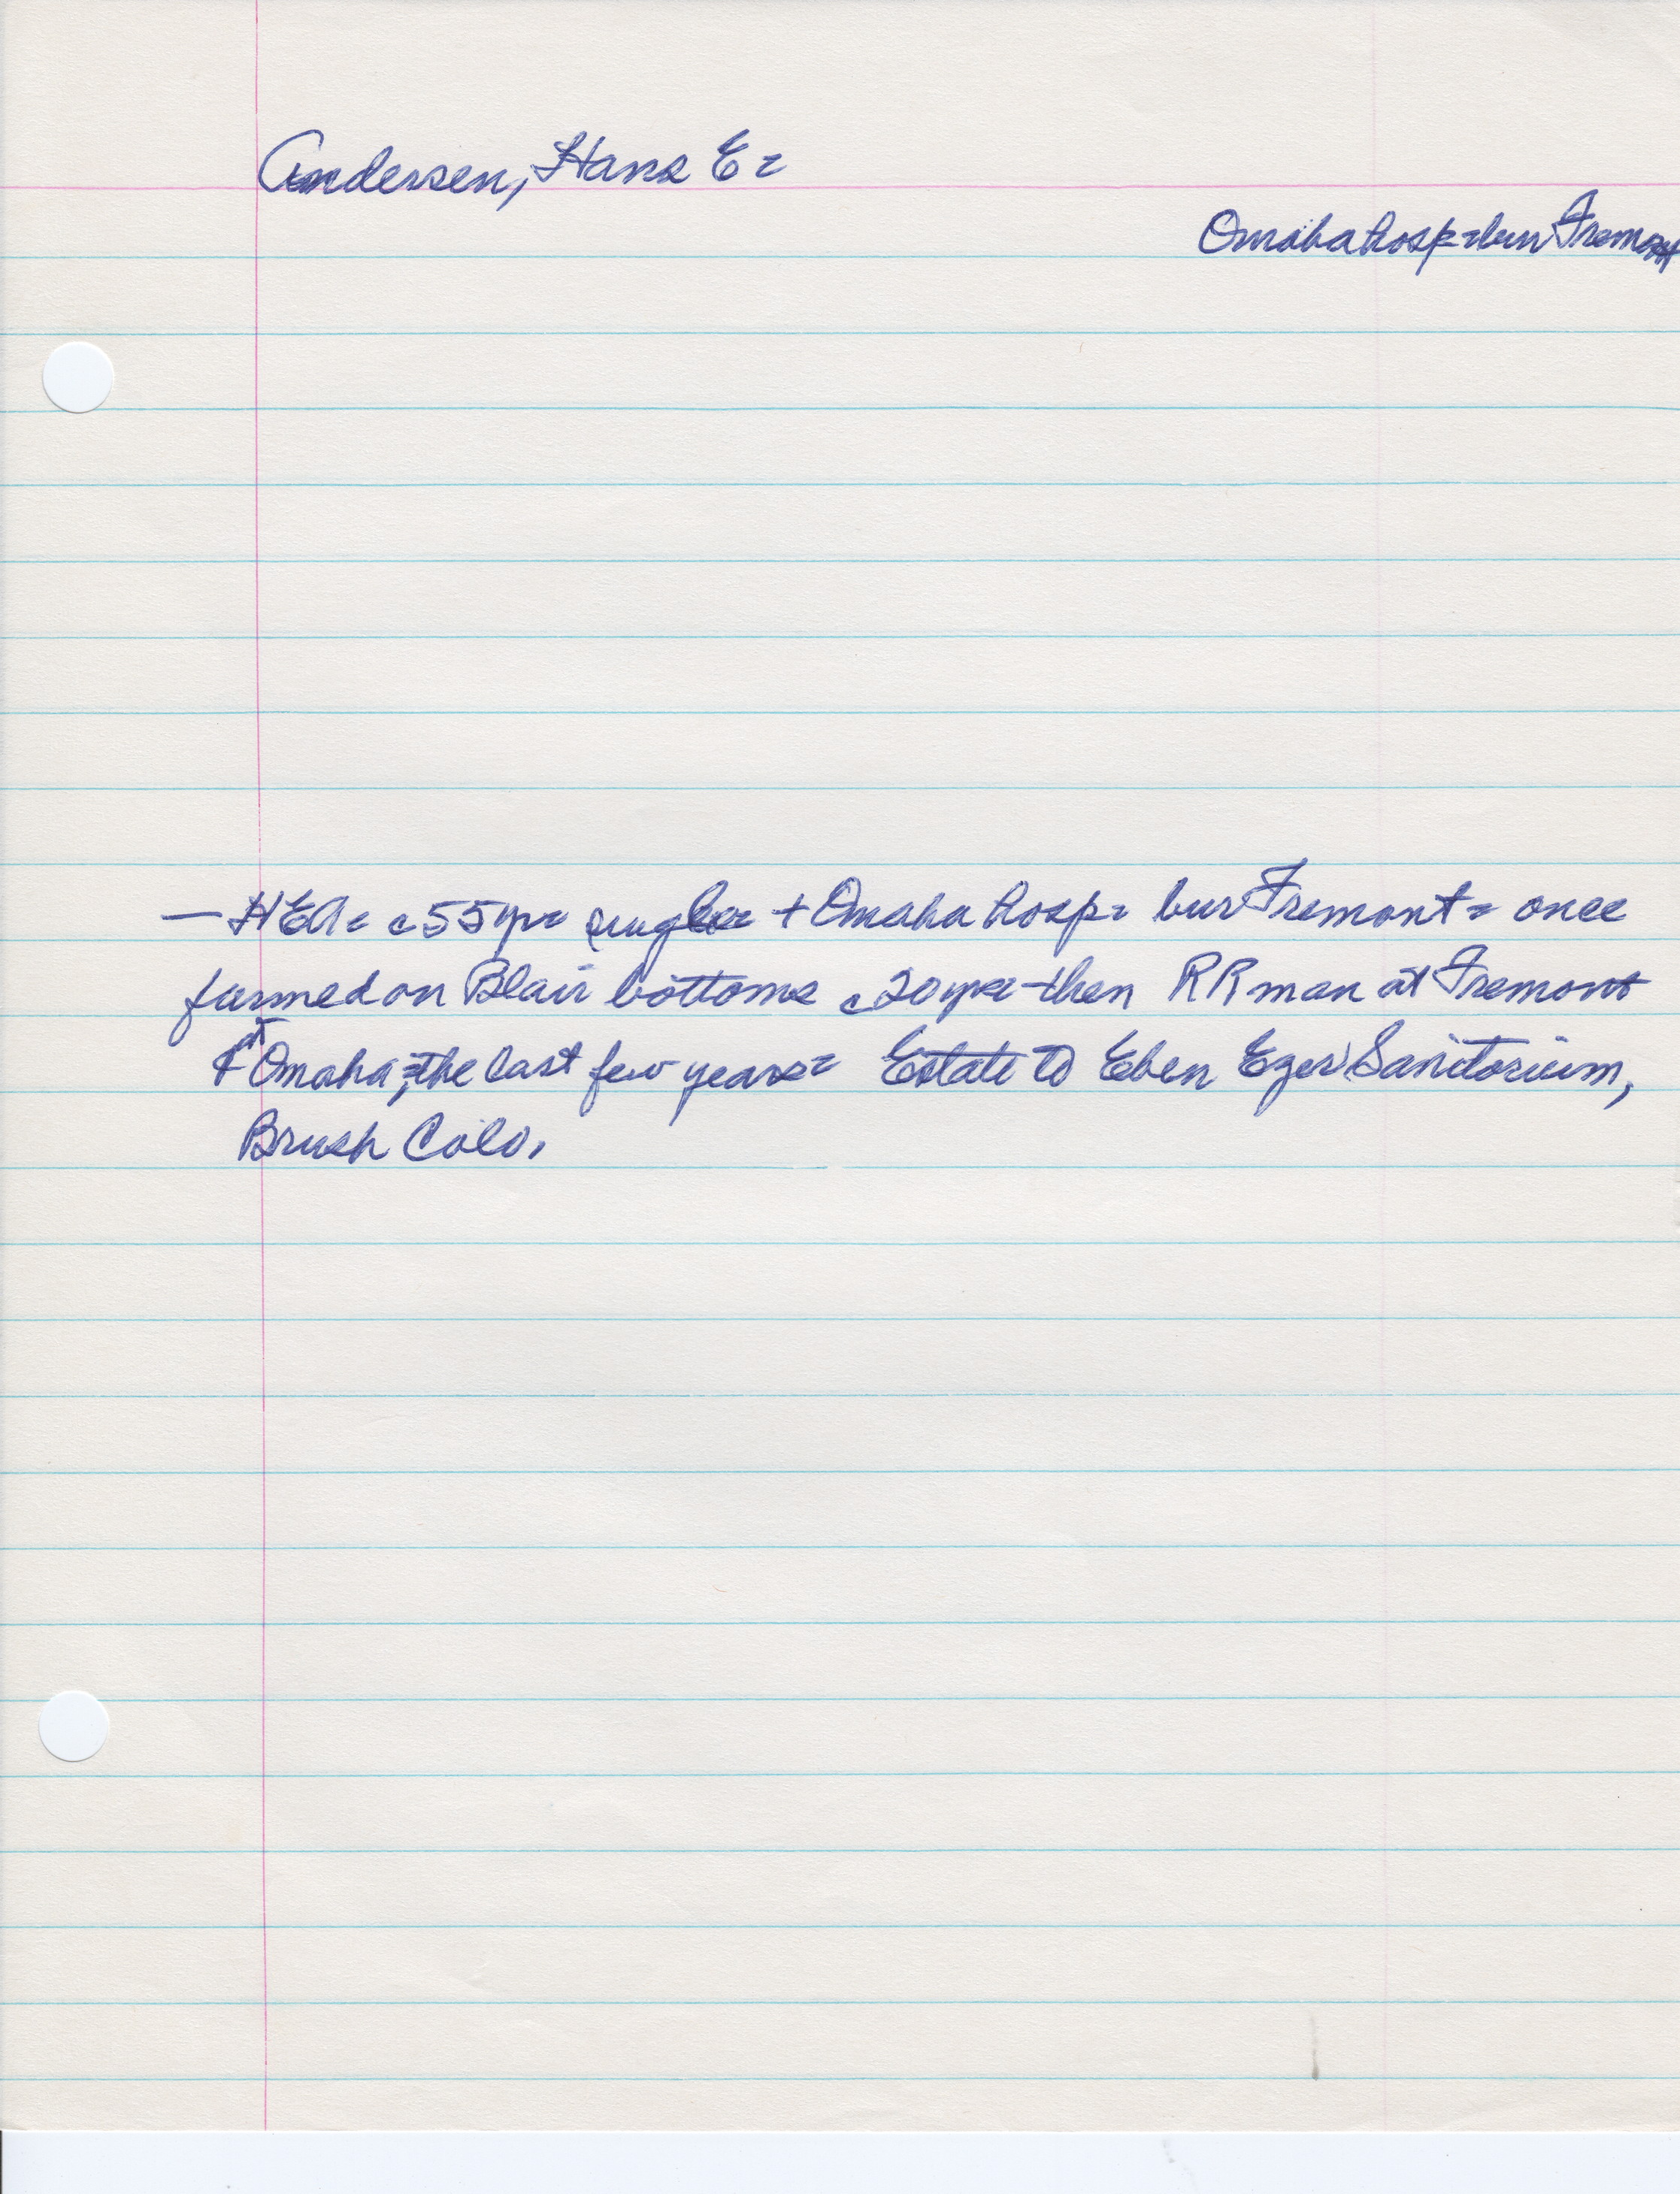 Andersen, Hans E =
Omaha hosp = bur Fremont
— HEA = c 55 yr = single = + Omaha hosp = bur Fremont = once
farmed on Blair bottoms c 20 yrs = then RR man at Fremont
& at Omaha, = the last few years = Estate to Eben Ezer Sanitorium,
Brush Colo.